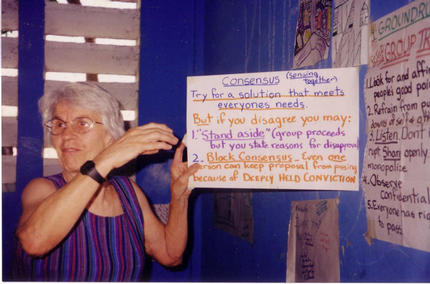 CONSENSUS (sensing together)
Try for a solution that meets
everyones needs.
But if you disagree you may:
1. "Stand aside" (group proceeds
but you state reasons for disapproval
2. Block Consensus - Even one
person can keep proposal from passing
because of DEEPLY HELD CONVICTION
GROUNDRU
GROUP TR
1. Look for and affir
people's good poi
2. Refrain from pu
3. Listen. Don't
not Share openly
monopolize.
4. Observe
Confidential
5. Everyone has rig
to pass